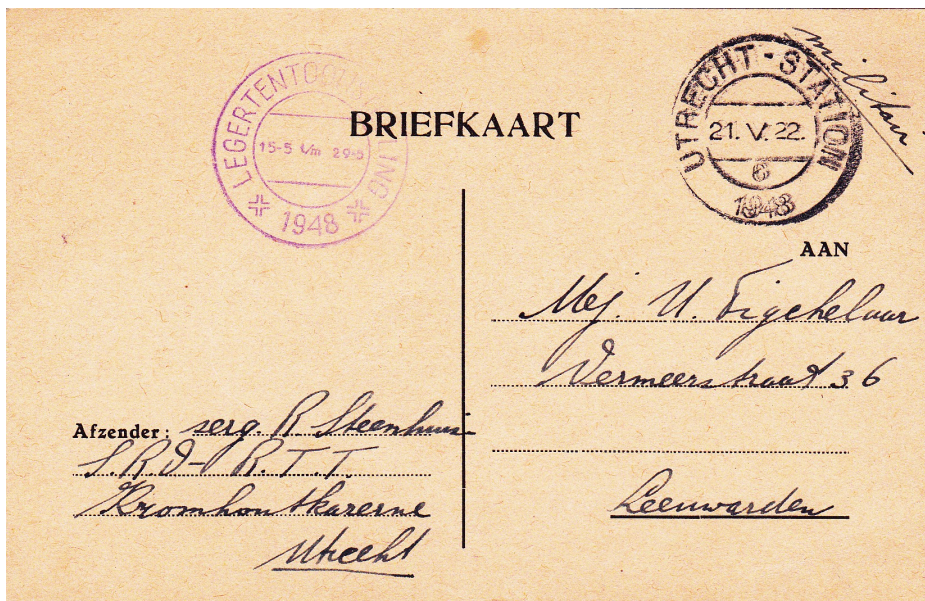 LEGERTENTOONSTELLING
15-5 t/m 29-5
1948
BRIEFKAART
UTRECHT-STATION
21. V. 22.
6
1948
militair
AAN
Mej. U. Tigchelaar
Vermeerstraat 36
Leeuwarden
Afzender: serg. R. Steenhuis
S.R.D- R.T.T.
Kromhoutkazerne
Utrecht